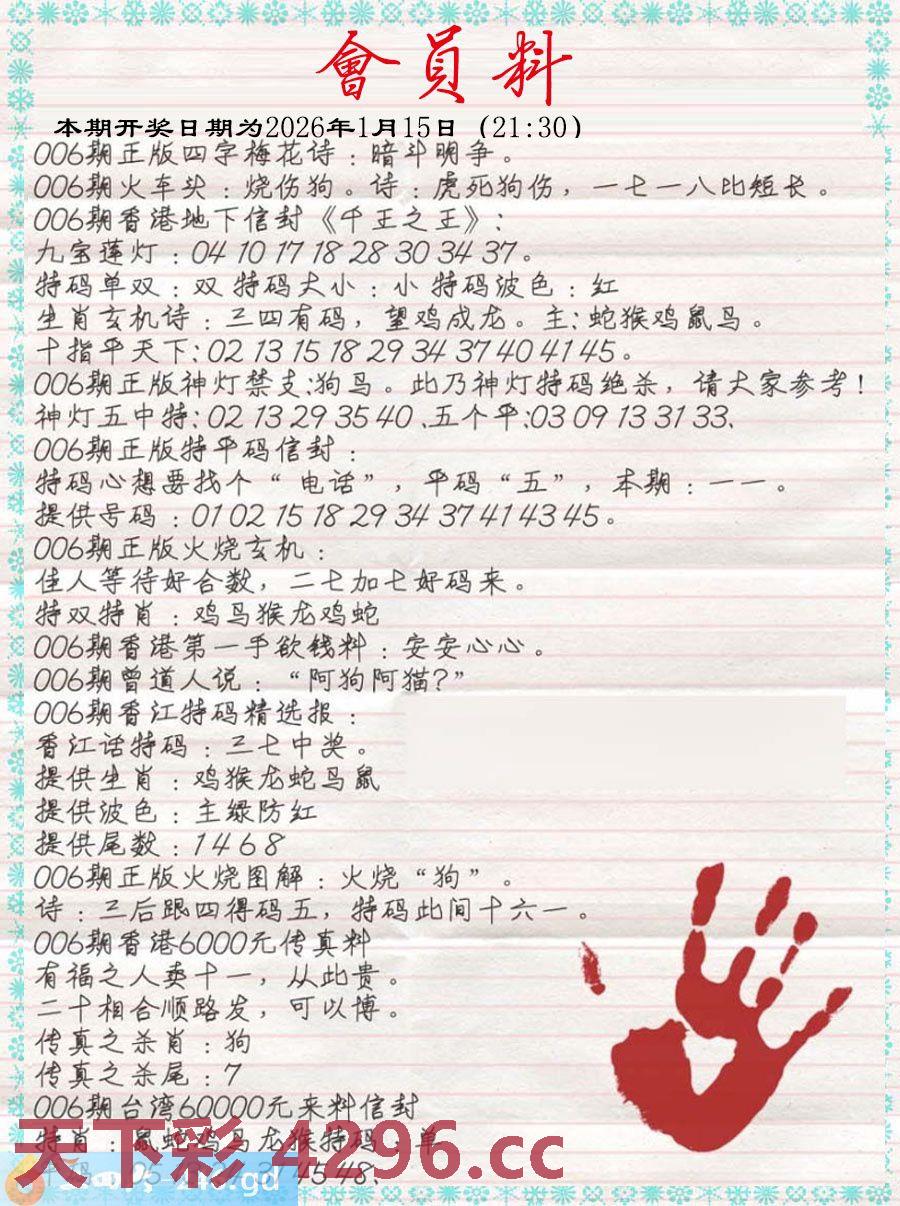 會員料
本期开奖日期为2026年1月15日（21:30）
006期正版四字梅花诗：暗斗明争。
006期火车头：烧伤狗。诗：虎死狗伤，一七一八比短长。
006期香港地下信封《千王之王》：
九宝莲灯：04 10 17 18 28 30 34 37。
特码单双：双 特码大小：小 特码波色：红
生肖玄机诗：三四有码，望鸡成龙。主：蛇猴鸡鼠马。
十指平天下：02 13 15 18 29 34 37 40 41 45。
006期正版神灯禁支：狗马。此乃神灯特码绝杀，请大家参考！
神灯五中特：02 13 29 35 40 、五个平：03 09 13 31 33、
006期正版特平码信封：
特码心想要找个“电话”，平码“五”，本期：一一。
提供号码：01 02 15 18 29 34 37 41 43 45。
006期正版火烧玄机：
佳人等待好合数，二七加七好码来。
特双特肖：鸡马猴龙鸡蛇
006期香港第一手欲钱料：安安心心。
006期曾道人说：“阿狗阿猫?”
006期香江特码精选报：
香江话特码：三七中奖。
提供生肖：鸡猴龙蛇马鼠
提供波色：主绿防红
提供尾数：1 4 6 8
006期正版火烧图解：火烧“狗”。
诗：三后跟四得码五，特码此间十六一。
006期香港6000元传真料
有福之人卖十一，从此贵。
二十相合顺路发，可以博。
传真之杀肖：狗
传真之杀尾：7
006期台湾60000元来料信封
特肖：鼠蛇鸡马龙猴特码：单
45 48、
天下彩4296.cc